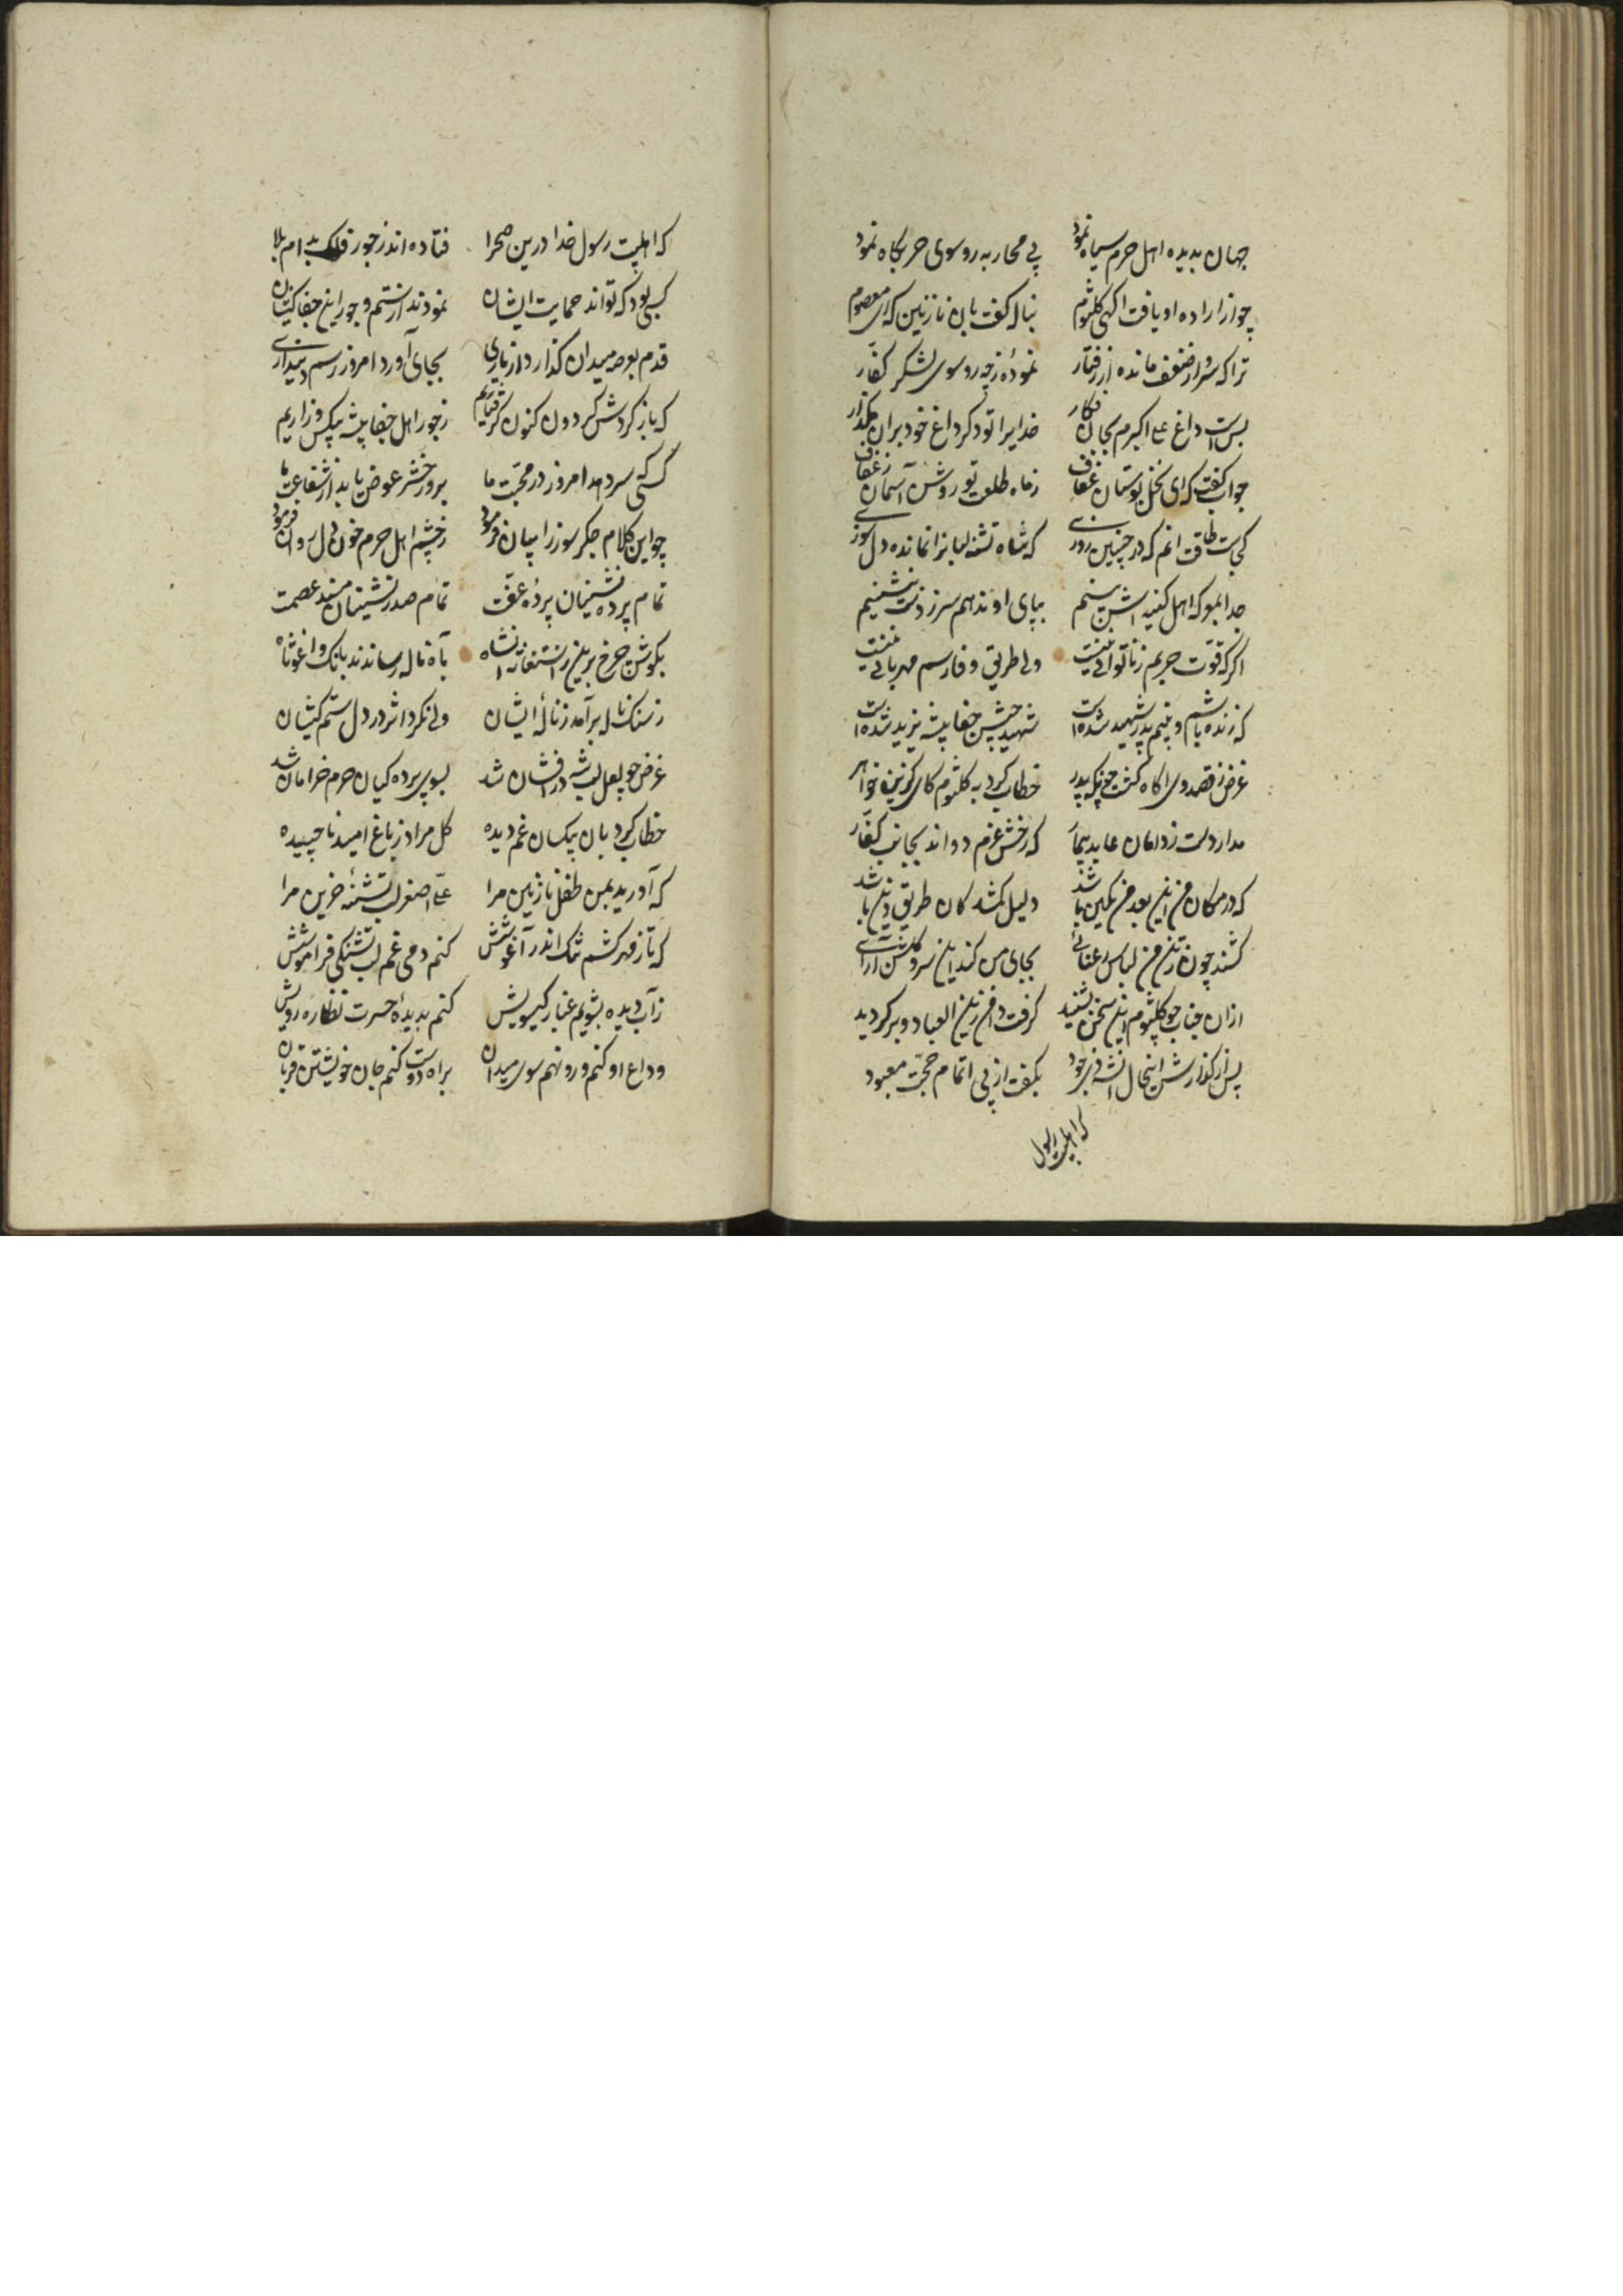 جهان بدیده اهل حرم سیاه نمود پی محاربه رو سوی حربکاه نمود
چو از اراده او یافت اکهی کلثوم بناله کفت بان نازنین که ای معصوم
ترا که شد از ضعف مانده از رفتار نمودهٔ زچه رو سوی لشکر کفار
بس است داغ علی اکبرم بجان فکار خدایرا تو دکر داغ خود بران مکذار
جواب کفت که ای نخل بوستان عفاف ز ماه طلعت تو روشن آسمان زعفاف
کجاست طاقت انم که در چنین روزی که شاه تشنه لبانرا نمانده دلسوزی
جدا بپای او ندهم سر ز ذلت بنشینم
اکر که قوت حربم ز ناتوانی نیست ولی طریق وفا رسم مهربانی نیست
که زنده باشم و بینم پدر شهید شده است شهید جیش جفا پیشه یزید شده است
غرض ز قصد وی اکاه کشت چونکه پدر خطاب کرد به کلثوم کای کزین خواهر
مدار دست ز دامان عابد بیمار که رخش عزم دواند بجانب کفار
که در مکان من این بعد من مکین باشد دلیل کمشدکان طریق دین باشد
کشند چون ز تن من لباس رعنائی بجای من کند این سرو کلشن آرائی
ازان جناب چو کلثوم این سخن بشنید کرفت دامن زین العباد و برکردید
پس از کذارش اینحال انشه ذیجود بکفت از پی اتمام حجت معبود
که اهلبیت رسول
که اهلبیت رسول خدا درین صحرا فتاده اند ز جور فلک بدام بلا
کسی بود که تواند حمایت ایشان نمودند از ستم و جور این جفا کیشان
قدم بعرصه میدان کذارد از یاری بجای آورد امروز رسم دینداری
که باز کردش کردون کنون کرفتاریم ز جور اهل جفا پیشه بیکس و زاریم
کسی که سر دهد امروز در محبت ما بروز حشر عوض یابد از شفاعت ما
چو این کلام جکر سوز را بیان فرمود ز چشم اهل حرم خون دل روان فرمود
تمام پرده نشینان پردهٔ عفت تمام صدر نشینان مسند عصمت
بکوش چرخ برین ز استغاثه انشاه بآه ناله رساندند بانک وا غوثاه
ز سنک ناله برآمد ز نالهٔ ایشان ولی نکرد اثر در دل ستم کیشان
غرض چو لعل لب شه درافشان شد بسوی پرده کیان حرم خرامان شد
خطاب کرد بان بیکسان غمدیده کل مراد ز باغ امید ناچیده
که آورید بمن طفل نازنین مرا علی اصغر لب تشنهٔ حزین مرا
که تا ز مهر کشم تنک اندر آغوشش کنم دمی غم لب تشنکی فراموشش
ز آب دیده بشویم غبار کیسویش کنم بدیدهٔ حسرت نظاره رویش
وداع او کنم و رو نهم سوی میدان براه دوست کنم جان خویشتن قربان